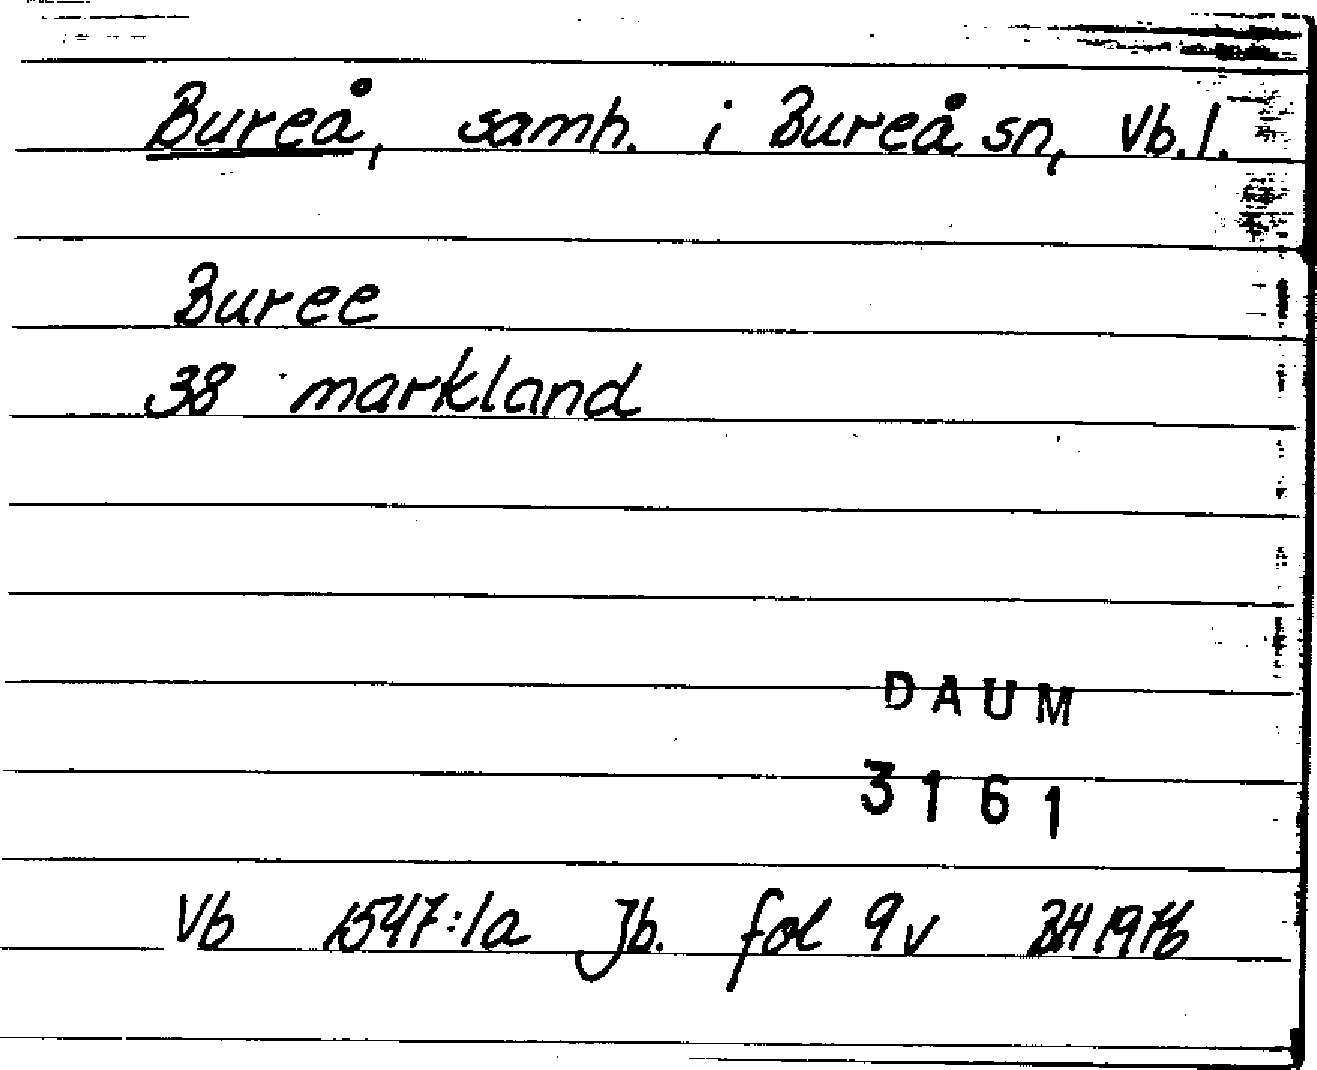 Bureå, samh. i Bureå sn, Vb. l.
Buree
38 markland
DAUM
3161
Vb 1547:1a Jb. fol 9v BH 1976